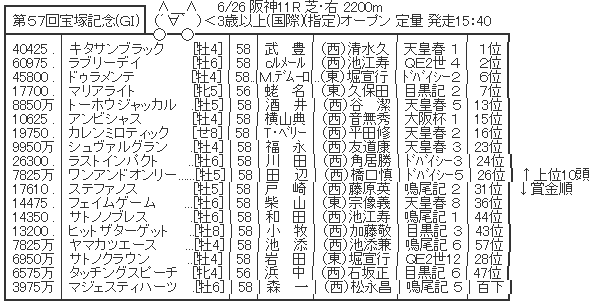 第57回宝塚記念(GI) 6/26 阪神11R 芝・右 2200m
(´∀`) <3歳以上(国際)(指定)オープン 定量 発走15:40
40425. キタサンブラック [牡4] 58 武 豊 (西)清水久 天皇春 1 1位
60975. ラブリーデイ [牡6] 58 c.ルメール (西)池江寿 QE2世 4 2位
45800. ドゥラメンテ [牡4] 58 M.デムーロ (東)堀宣行 ドバイシー2 6位
17700. マリアライト [牝5] 56 蛯 名 (東)久保田 目黒記 2 7位
8850万 トーホウジャッカル [牡5] 58 酒 井 (西)谷 潔 天皇春 5 13位
10625. アンビシャス [牡4] 58 横山典 (西)音無秀 大阪杯 1 15位
19750. カレンミロティック [せ8] 58 T・ベリー (西)平田修 天皇春 2 16位
9950万 シュヴァルグラン [牡4] 58 福 永 (西)友道康 天皇春 3 23位
26300. ラストインパクト [牡6] 58 川 田 (西)角居勝 ドバイシー3 24位
7825万 ワンアンドオンリー [牡5] 58 田 辺 (西)橋口慎 ドバイシー5 26位 ↑上位10頭
17610. ステファノス [牡5] 58 戸 崎 (西)藤原英 鳴尾記 2 31位 ↓賞金順
14475. フェイムゲーム [牡6] 58 柴 山 (東)宗像義 天皇春 8 36位
14350. サトノノブレス [牡6] 58 和 田 (西)池江寿 鳴尾記 1 44位
13200. ヒットザターゲット [牡8] 58 小 牧 (西)加藤敬 目黒記 3 43位
7825万 ヤマカツエース [牡4] 58 池 添 (西)池添兼 鳴尾記 6 57位
6950万 サトノクラウン [牡4] 58 岩 田 (東)堀宣行 QE2世12 28位
6575万 タッチングスピーチ [牝4] 56 浜 中 (西)石坂正 目黒記 6 47位
3975万 マジェスティハーツ [牡6] 58 森 一 (西)松永昌 鳴尾記 5 百下